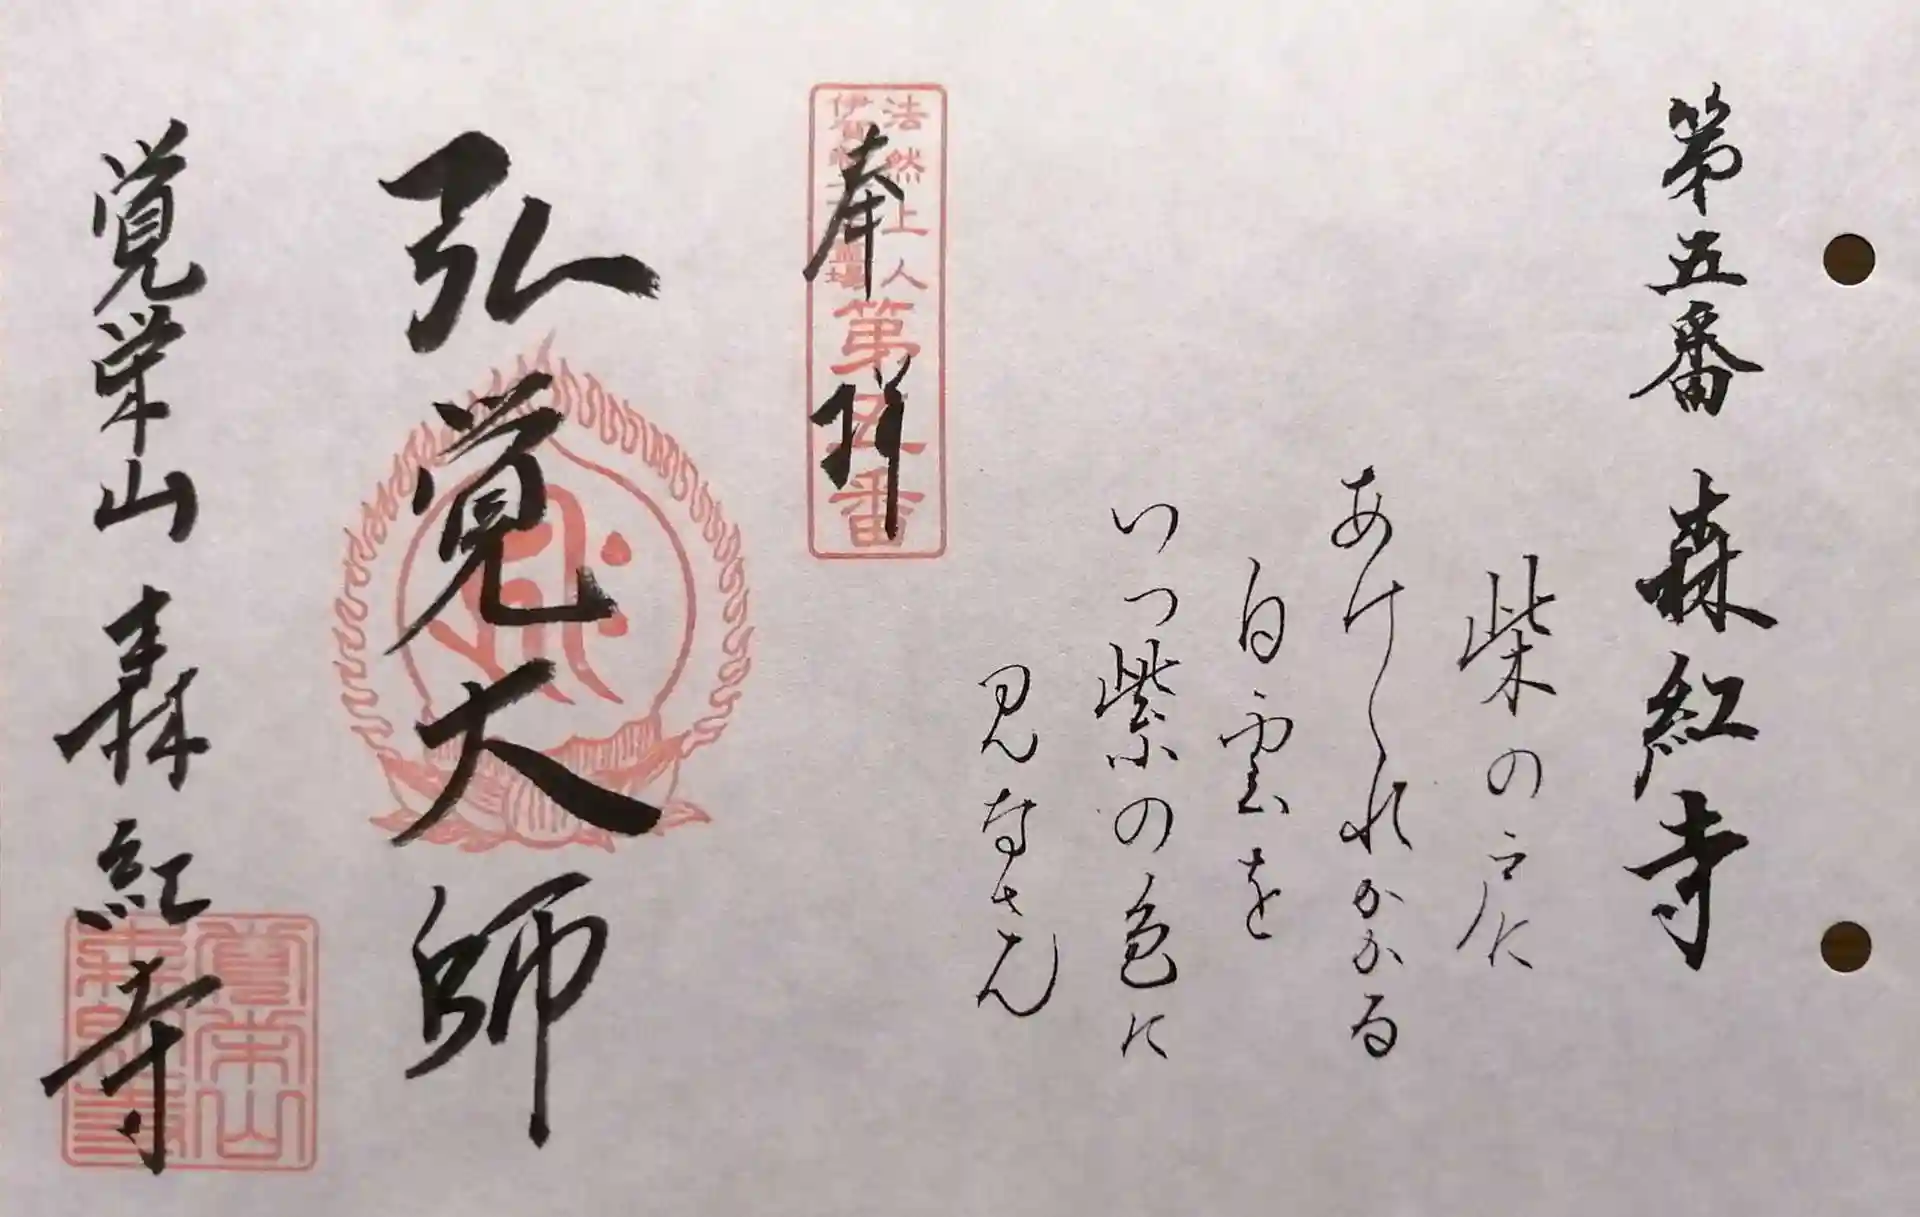 第五番 森紅寺
柴の戸に
あけくれかかる
白雲を
いつ紫の色に
見なさん
法然上人
伊賀
霊場
第五番
奉拝
弘覚大師
覚栄山 森紅寺